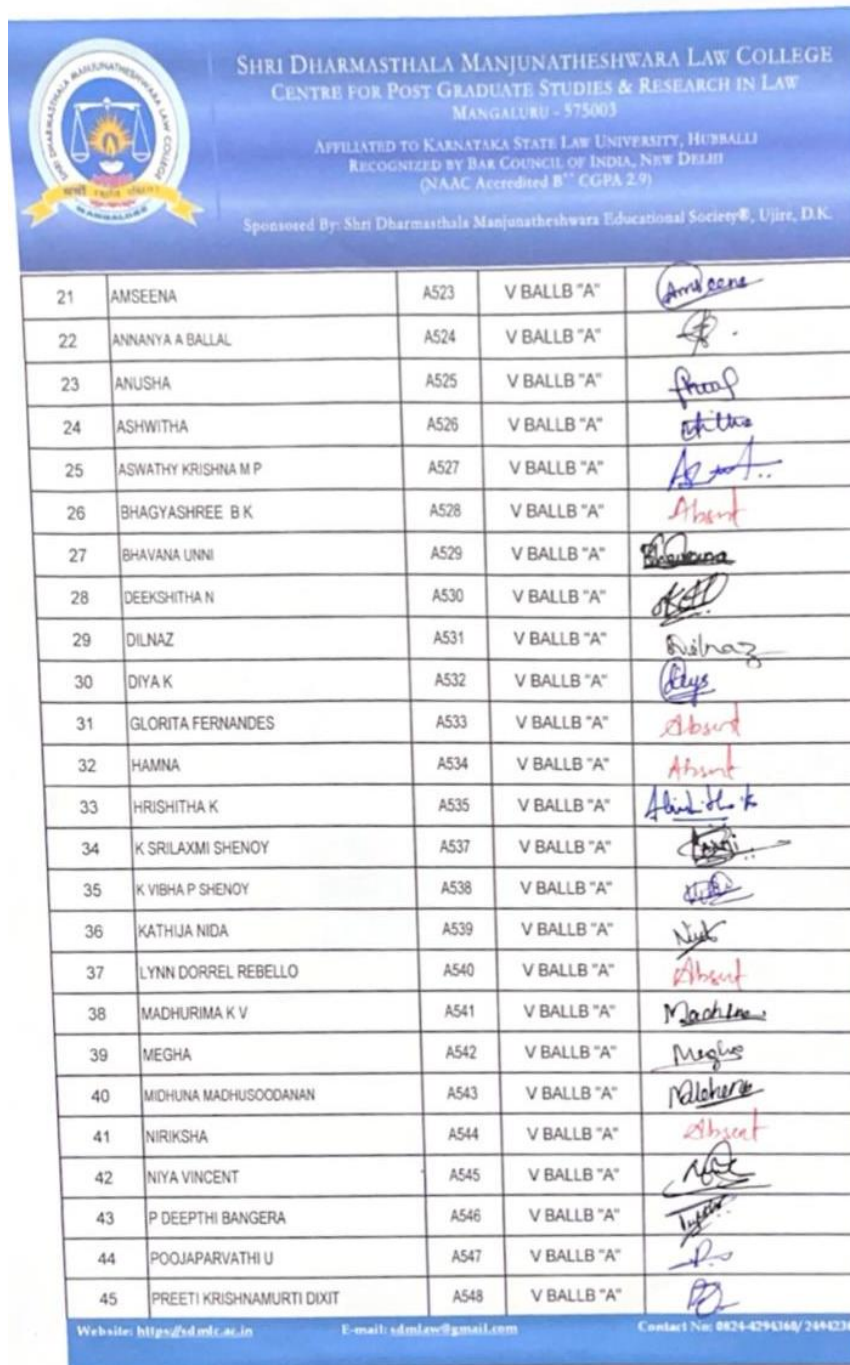 SHRI DHARMASTHALA MANJUNATHESHWARA LAW COLLEGE
CENTRE FOR POST GRADUATE STUDIES & RESEARCH IN LAW
MANGALURU - 575003
AFFILIATED TO KARNATAKA STATE LAW UNIVERSITY, HUBBALLI
RECOGNIZED BY BAR COUNCIL OF INDIA, NEW DELHI
(NAAC Accredited B++ CGPA 2.9)
Sponsored By: Shri Dharmasthala Manjunatheshwara Educational Society®, Ujire, D.K.
SHRI DHARMASTHALA MANJUNATHESHWARA LAW COLLEGE
MANGALORE
21 AMSEENA A523 V BALLB "A" Amseena
22 ANNANYA A BALLAL A524 V BALLB "A"
23 ANUSHA A525 V BALLB "A"
24 ASHWITHA A526 V BALLB "A"
25 ASWATHY KRISHNA M P A527 V BALLB "A"
26 BHAGYASHREE B K A528 V BALLB "A" Absent
27 BHAVANA UNNI A529 V BALLB "A" Bhavana
28 DEEKSHITHA N A530 V BALLB "A"
29 DILNAZ A531 V BALLB "A" Dilnaz
30 DIYA K A532 V BALLB "A"
31 GLORITA FERNANDES A533 V BALLB "A" Absent
32 HAMNA A534 V BALLB "A" Absent
33 HRISHITHA K A535 V BALLB "A"
34 K SRILAXMI SHENOY A537 V BALLB "A"
35 K VIBHA P SHENOY A538 V BALLB "A"
36 KATHIJA NIDA A539 V BALLB "A"
37 LYNN DORREL REBELLO A540 V BALLB "A" Absent
38 MADHURIMA K V A541 V BALLB "A"
39 MEGHA A542 V BALLB "A" Megha
40 MIDHUNA MADHUSOODANAN A543 V BALLB "A"
41 NIRIKSHA A544 V BALLB "A" Absent
42 NIYA VINCENT A545 V BALLB "A"
43 P DEEPTHI BANGERA A546 V BALLB "A"
44 POOJAPARVATHI U A547 V BALLB "A"
45 PREETI KRISHNAMURTI DIXIT A548 V BALLB "A"
Website: https://sdmlc.ac.in E-mail: sdmlaw@gmail.com Contact No: 0824-4294360/